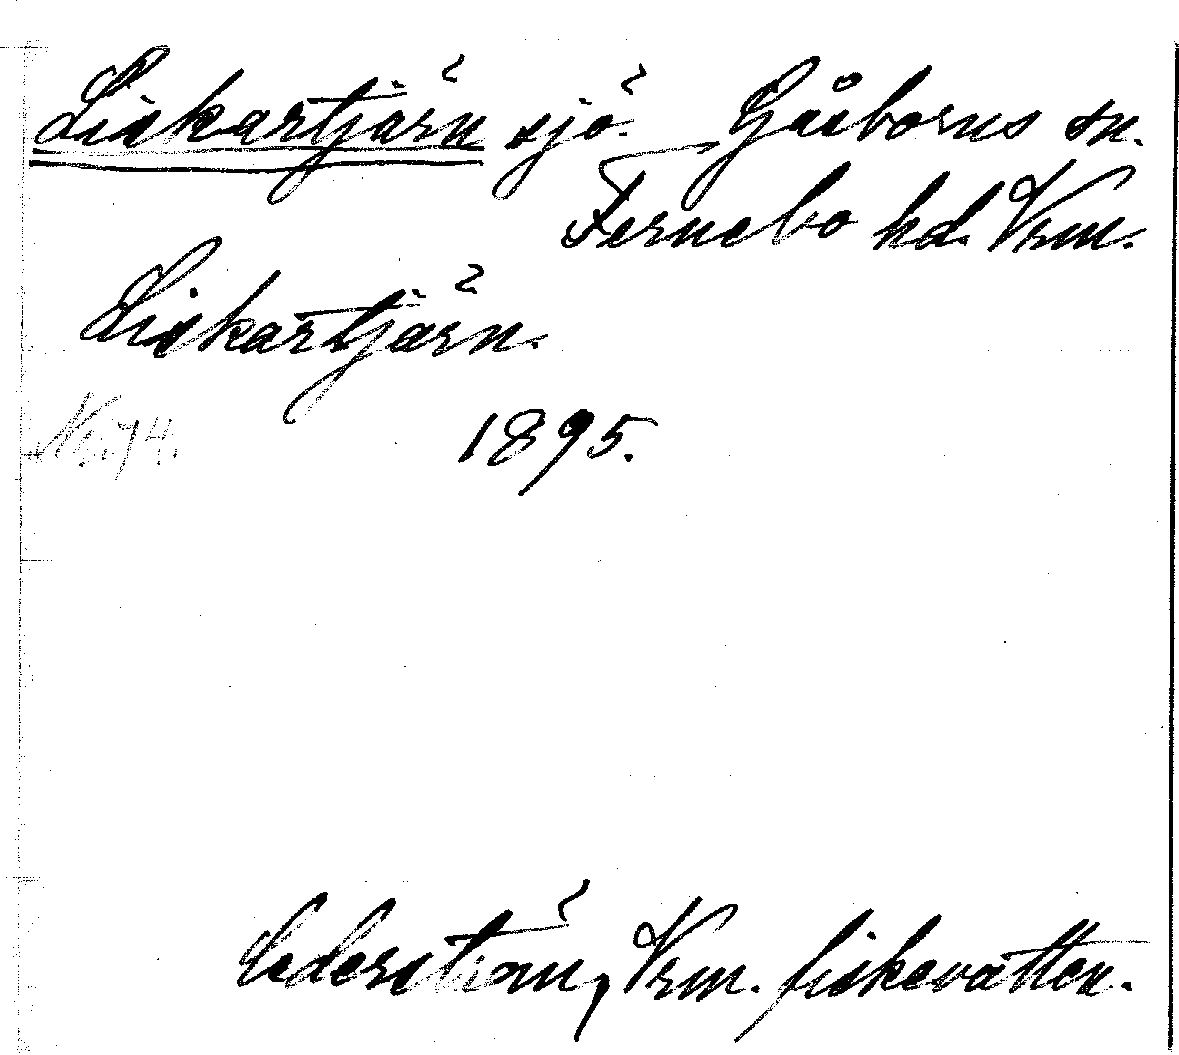 Liskartjärn sjö. Gåsborns sn.
Fernebo hd. Vrm.
Liskartjärn.
No. 74. 1895.
Cederström, Vrm. fiskevatten.